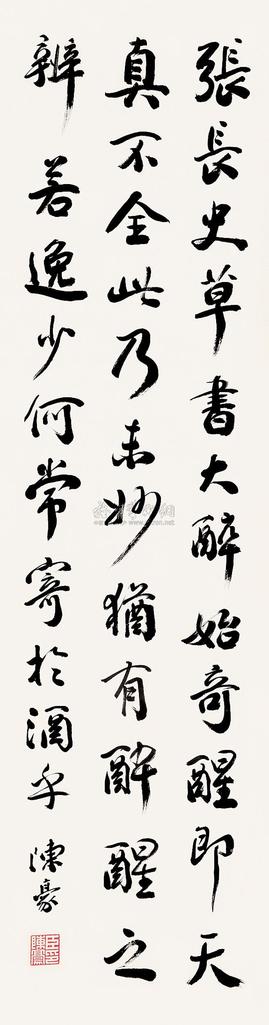 張長史草書大醉始奇醒即天
真不全此乃未妙猶有醉醒之
辨若逸少何常寄於酒乎
陳豪